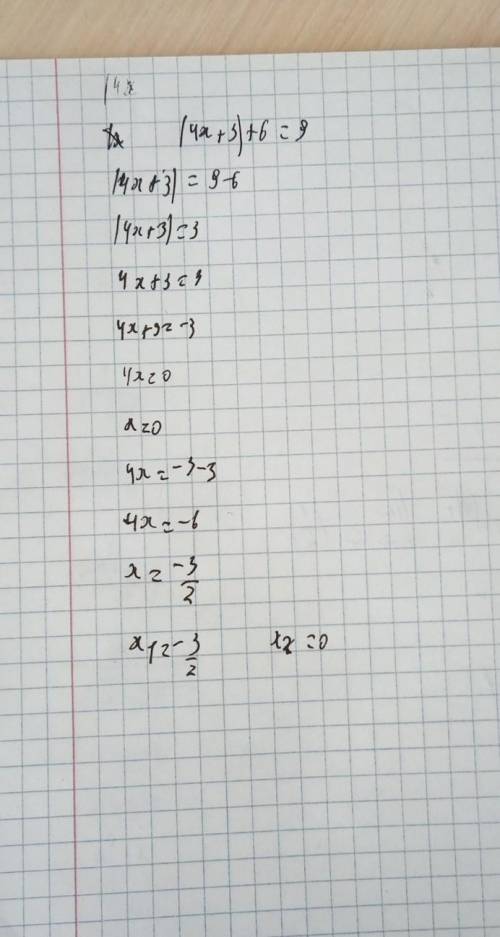 |4x
|4x+3|+6=9
|4x+3| = 9-6
|4x+3|=3
4x+3=3
4x+3=-3
4x=0
x=0
4x=-3-3
4x=-6
x=-3/2
x1=-3/2 x2=0